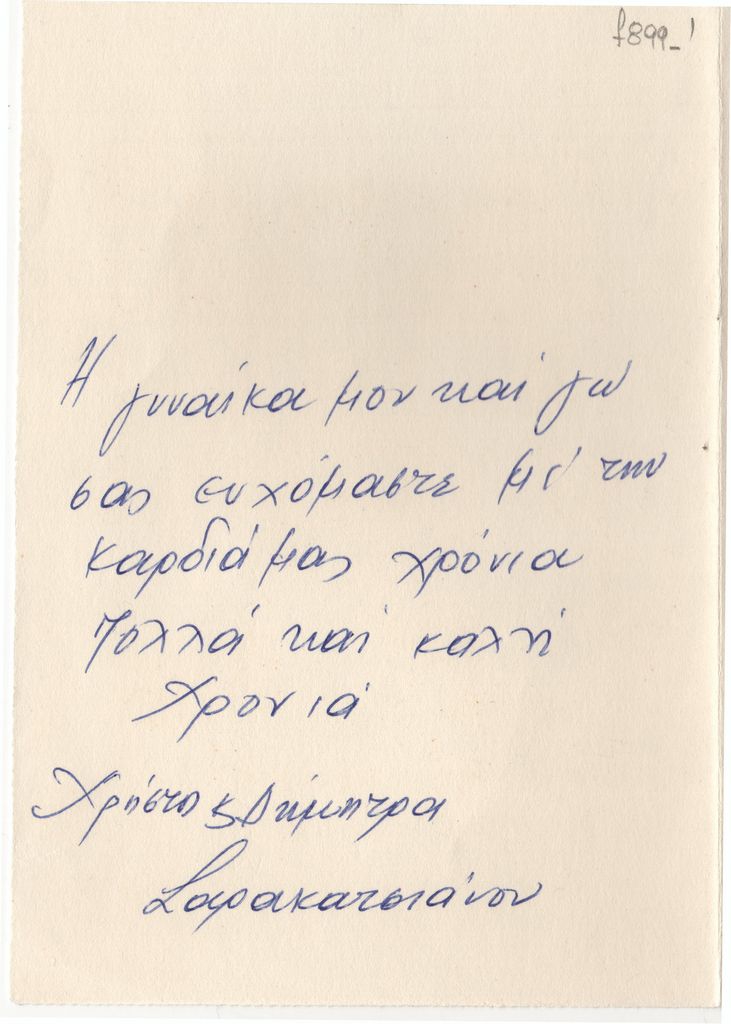 f899-1
Η γυναίκα μου και γω
σας ευχόμαστε μέ την
καρδιά μας χρόνια
πολλά και καλή
χρονιά
Χρήστος & Δήμητρα
Σαρακατσιάνου